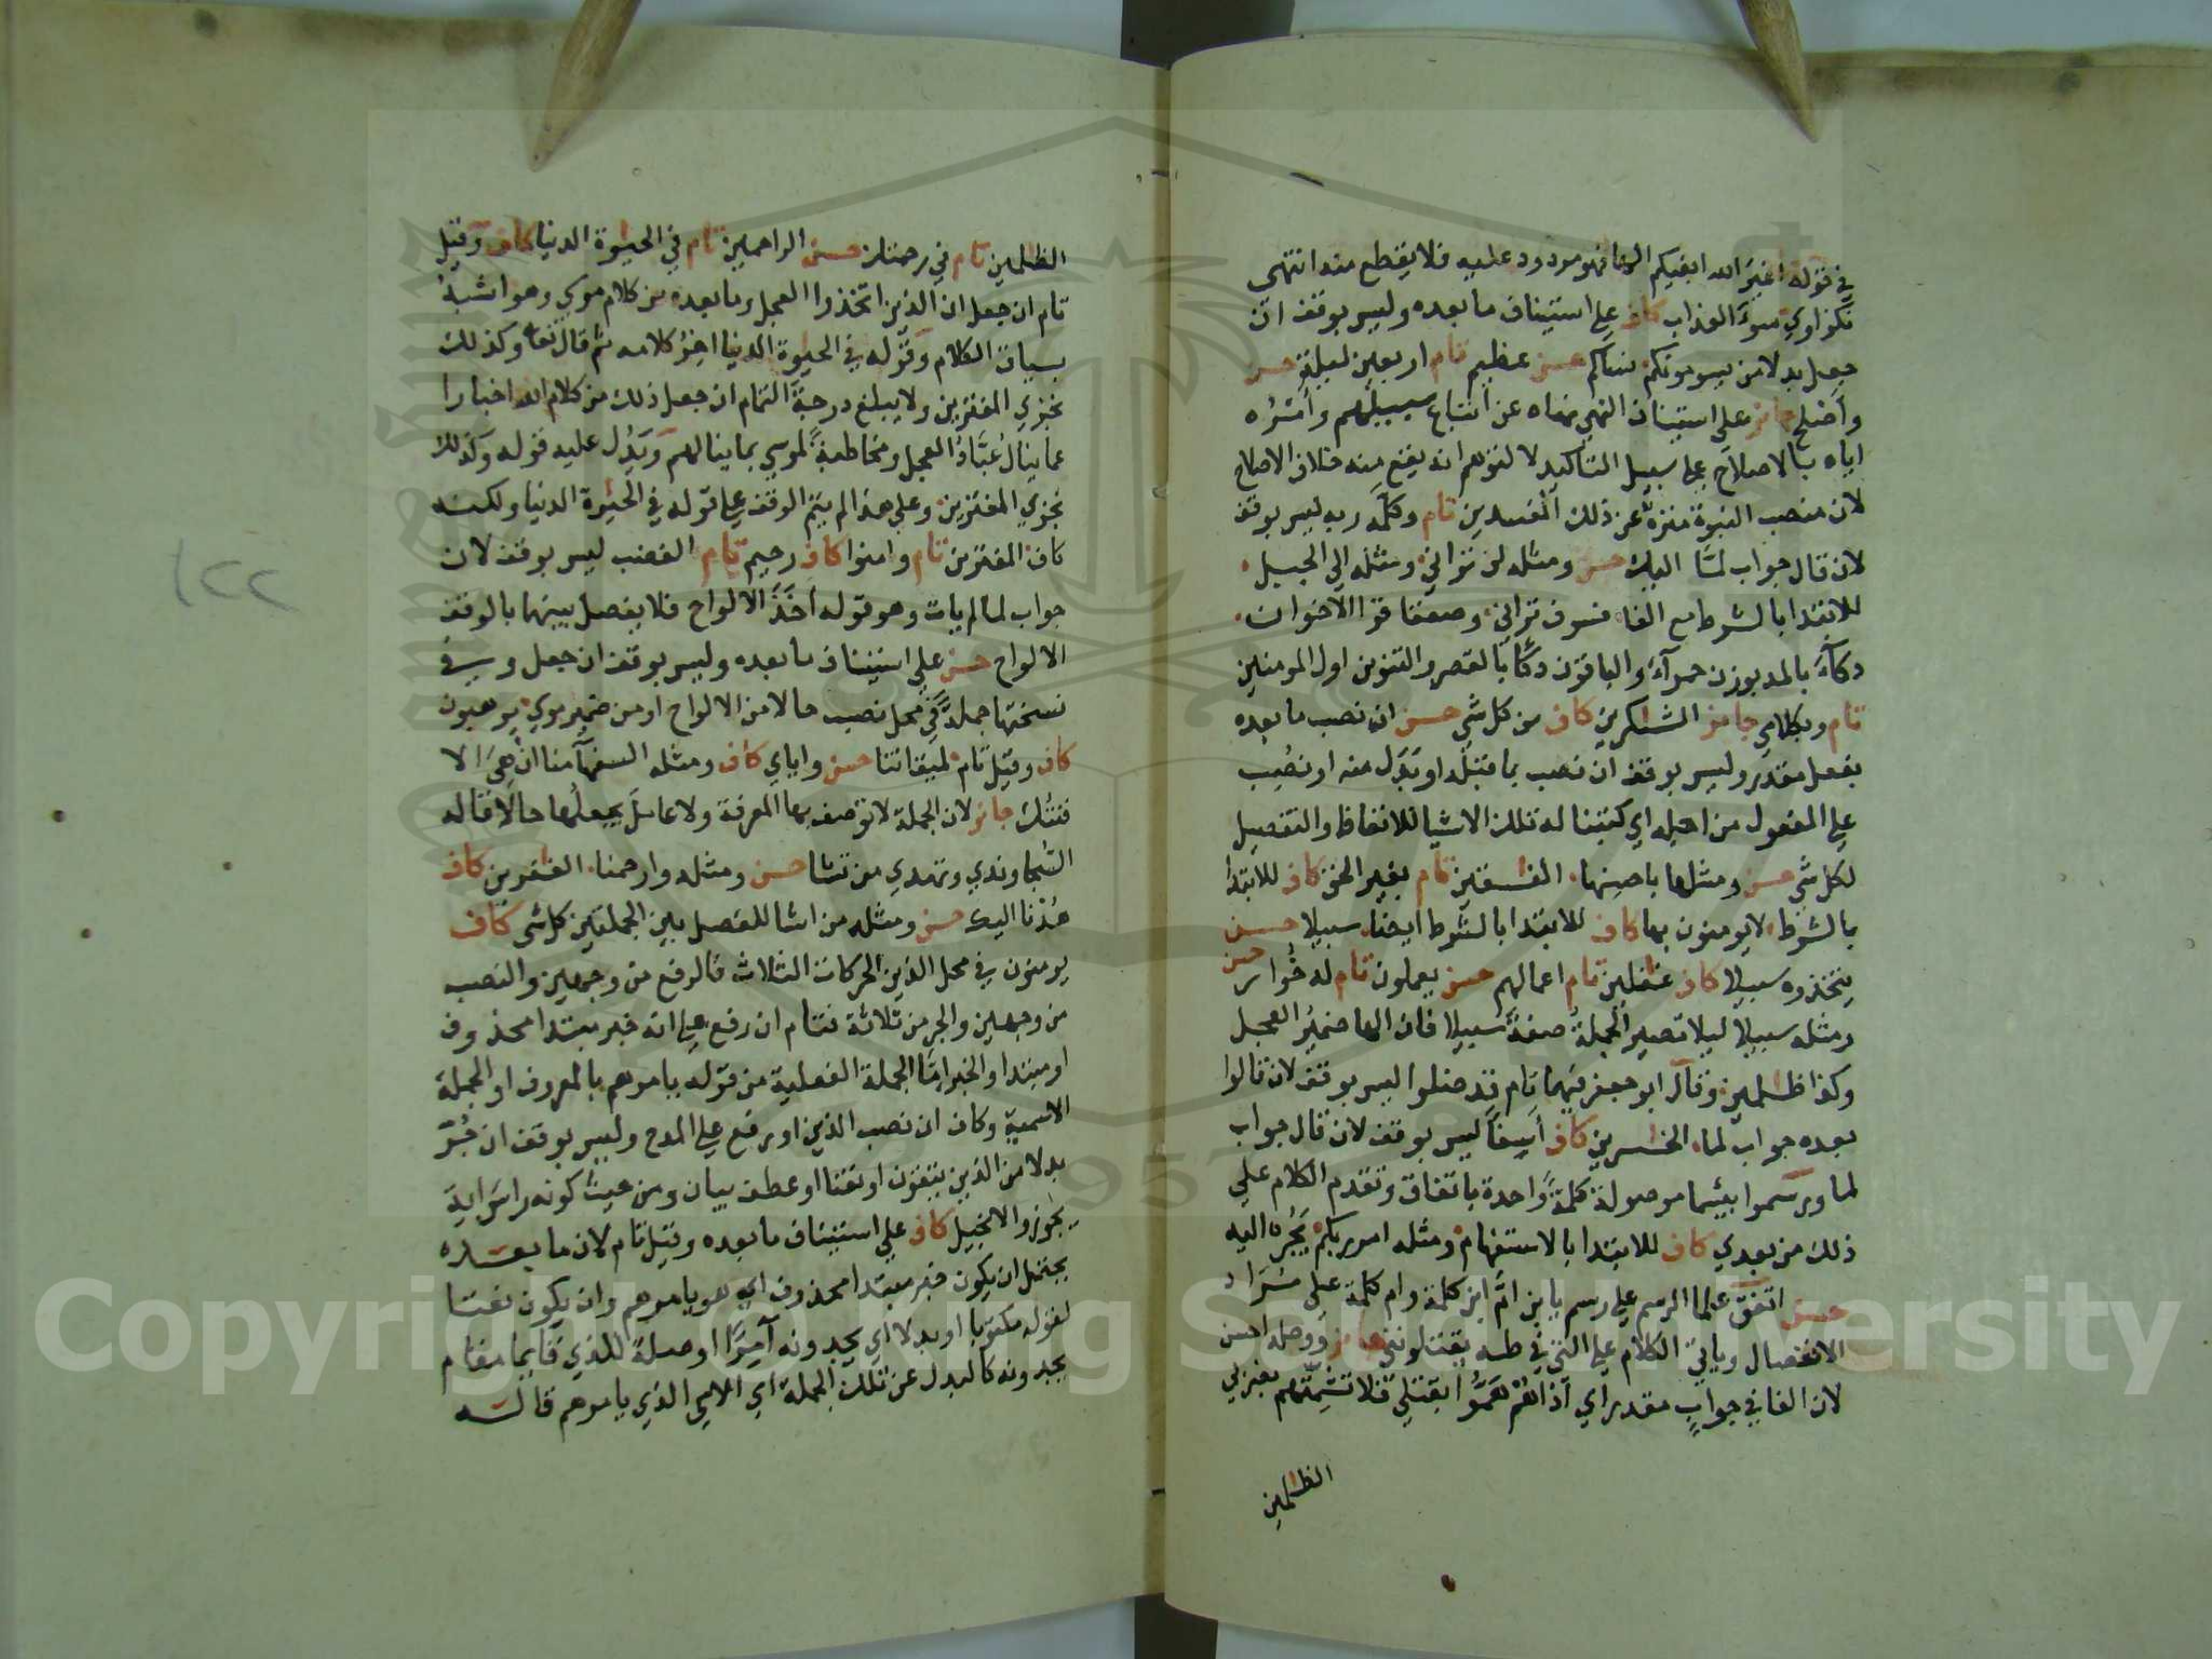 في قوله اغير الله ابغيكم الها فهو مردود عليه فلا يقطع منه انتهى
نكزاوي سوء العذاب كاف على استيناف ما بعده وليس بوقف ان
جعل بدلا من يسومونكم نساكم حسن عظيم تام اربعين ليلة حسن
وأصلح جائز على استيناف النهي نهاه عن اتباع سبيلهم وأمره
اياه بالاصلاح على سبيل التاكيد لا لتوهم انه يقع منه خلاف الاصلاح
لان منصب النبوة منزه عن ذلك المفسدين تام وكلمه ربه ليس بوقف
لان قال جواب لما اليك حسن ومثله لن تراني ومثله الى الجبل
للابتدا بالشرط مع الفا فسوف تراني وصعقا قرا الاخوان
دكآء بالمد بوزن حمرآء والباقون دكًا بالقصر والتنوين اول المومنين
تام وبكلامي جائز الشكرين كاف من كل شي حسن ان نصب ما بعده
بفعل مقدر وليس بوقف ان نصب بما قبله او بدل منه او نصب
على المفعول من اجله اي كتبنا له تلك الاشيا للاتعاظ والتفصيل
لكل شي حسن ومثلها باحسنها الفسقين تام بغير الحق كاف للابتدا
بالشرط لا يومنون بها كاف للابتدا بالشرط ايضا سبيلا حسن
يتخذوه سبيلا كاف غفلين تام اعمالهم حسن يعملون تام له خوار حسن
ومثله سبيلا ليلا تصير الجملة صفة سبيلا فان الها ضمير العجل
وكذا ظلمين وقال ابو جعفر فيهما تام قد ضلوا ليس بوقف لان قالوا
بعده جواب لما الخسرين كاف أسفاً ليس بوقف لان قال جواب
لما ورسموا بئسما موصولة كلمة واحدة باتفاق وتقدم الكلام على
ذلك من بعدي كاف للابتدا بالاستفهام ومثله امر ربكم يجره اليه
حسن اتفق علما الرسم على رسم يا بن ام ابن كلمة وام كلمة على مراد
الانفصال وياتي الكلام على التي في طه يقتلونني جائز ووصله احسن
لان الفا في جواب مقدر اي اذا هم هموا بقتلي فلا تشمتهم بضربي
الظلمين
الظلمين تام في رحمتك حسن الراحمين تام في الحيوة الدنيا كاف وقيل
تام ان جعل ان الذين اتخذوا العجل وما بعده من كلام موسى وهو اشبه
بسياق الكلام وقوله في الحيوة الدنيا اخر كلامه ثم قال تعا وكذلك
نجزي المفترين ولا يبلغ درجة التمام ان جعل ذلك من كلام الله اخبارا
عما ينال عُبَّاد العجل ومخاطبة لموسى بما ينالهم ويدل عليه قوله وكذلك
نجزي المفترين وعلى هذا لم يتم الوقف على قوله في الحيوة الدنيا ولكنه
كاف المفترين تام وامنوا كاف رحيم تام الغضب ليس بوقف لان
جواب لما لم يات وهو قوله أخذ الالواح فلا يفصل بينهما بالوقف
الالواح حسن على استيناف ما بعده وليس بوقف ان جعل وفي
نسختها جملة في محل نصب حالا من الالواح او من ضمير موسى يرهبون
كاف وقيل تام لميقاتنا حسن واياي كاف ومثله السفهآء منا ان هي الا
فتنتك جائز لان الجملة لا توصف بها المعرفة ولا عامل يجعلها حالا قاله
السجاوندي وتهدي من تشا حسن ومثله وارحمنا الغفرين كاف
هدنا اليك حسن ومثله من اشا للفصل بين الجملتين كل شي كاف
يومنون في محل الذين الحركات الثلاث فالرفع من وجهين والنصب
من وجهين والجر من ثلاثة فتام ان رفع على انه خبر مبتدا محذوف
او مبتدا والخبر امّا الجملة الفعلية من قوله يامرهم بالمعروف او الجملة
الاسمية وكاف ان نصب الذين او رفع على المدح وليس بوقف ان جُرّ
بدلا من الذين يتقون او نعتا او عطف بيان ومن حيث كونه راس اية
يجوز والانجيل كاف على استيناف ما بعده وقيل تام لان ما بعده
يحتمل ان يكون خبر مبتدا محذوف اي هو يامرهم وان يكون نعتا
لقوله مكتوبا او بدلا اي يجدونه آمرًا او صلة للذي قايما مقام
يجدونه كالبدل عن تلك الجملة اي الامي الذي يامرهم قاله
١٢٢
Copyright © King Saud University
1957